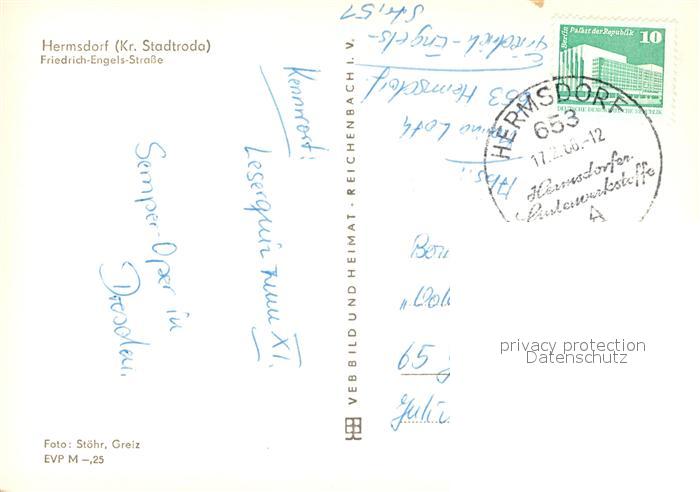 Hermsdorf (Kr. Stadtroda)
Friedrich-Engels-Straße
Kennwort:
Leserquiz zum XI.
Semper-Oper in
Dresden.
Foto: Stöhr, Greiz
EVP M –,25
VEB BILD UND HEIMAT · REICHENBACH I. V.
Abs.:
653 Hermsdorf
Friedrich-Engels-
Str. 51
Berlin Palast der Republik
10
DEUTSCHE DEMOKRATISCHE REPUBLIK
HERMSDORF
653
-12
Hermsdorfer
65
privacy protection
Datenschutz